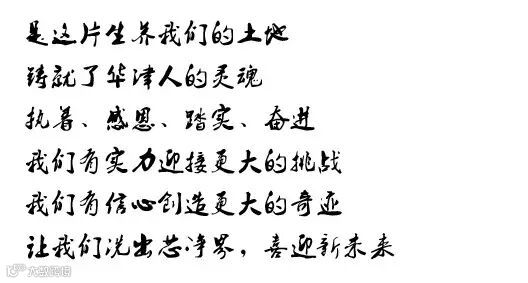 是这片生养我们的土地
铸就了华津人的灵魂
执着、感恩、踏实、奋进
我们有实力迎接更大的挑战
我们有信心创造更大的奇迹
让我们洗出芯净界，喜迎新未来
大数跨境